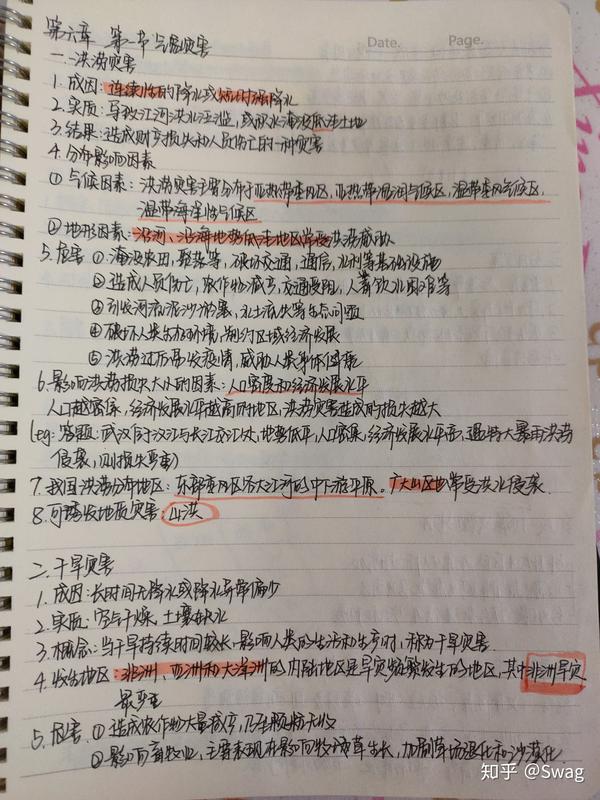 Date. Page.
第六章 第一节 气象灾害
一.洪涝灾害
1. 成因: 连续性的降水或短时强降水
2. 实质: 导致江河洪水泛滥, 或积水淹没低洼土地
3. 结果: 造成财产损失和人员伤亡的一种灾害
4. 分布影响因素
① 气候因素: 洪涝灾害主要分布于亚热带季风区, 亚热带湿润气候区, 温带季风气候区,
温带海洋性气候区
② 地形因素: 沿河、沿海地势低洼地区常受洪涝威胁
5. 危害 ① 淹没农田, 聚落等, 破坏交通, 通信, 水利等基础设施
② 造成人员伤亡, 农作物减产, 交通受阻, 人畜饮水困难等
③ 引发河底泥沙游塞, 水土流失等生态问题
④ 破坏人类生存环境, 制约区域经济发展
⑤ 洪涝过后易发疫情, 威胁人类身体健康
6. 影响洪涝损失大小的因素: 人口密度和经济发展水平
人口越密集, 经济发展水平越高的地区, 洪涝灾害造成的损失越大
(eg: 答题: 武汉位于汉江与长江交汇处, 地势低平, 人口密集, 经济发展水平高, 遇特大暴雨洪涝
侵袭, 则损失严重)
7. 我国洪涝分布地区: 东部季风区各大江河的中下游平原。广大山区也常受洪水侵袭.
8. 可诱发地质灾害: 山洪
二.干旱灾害
1. 成因: 长时间无降水或降水异常偏少
2. 实质: 空气干燥, 土壤缺水
3. 概念: 当干旱持续时间较长, 影响人类的生活和生产时, 称为干旱灾害.
4. 发生地区: 非洲、亚洲和大洋洲的内陆地区是旱灾频繁发生的地区, 其中非洲旱灾
最严重
5. 危害 ① 造成农作物大量减产, 乃至颗粒无收
② 影响畜牧业, 主要表现在影响牧草生长, 加剧草场退化和沙漠化.
知乎 @Swag